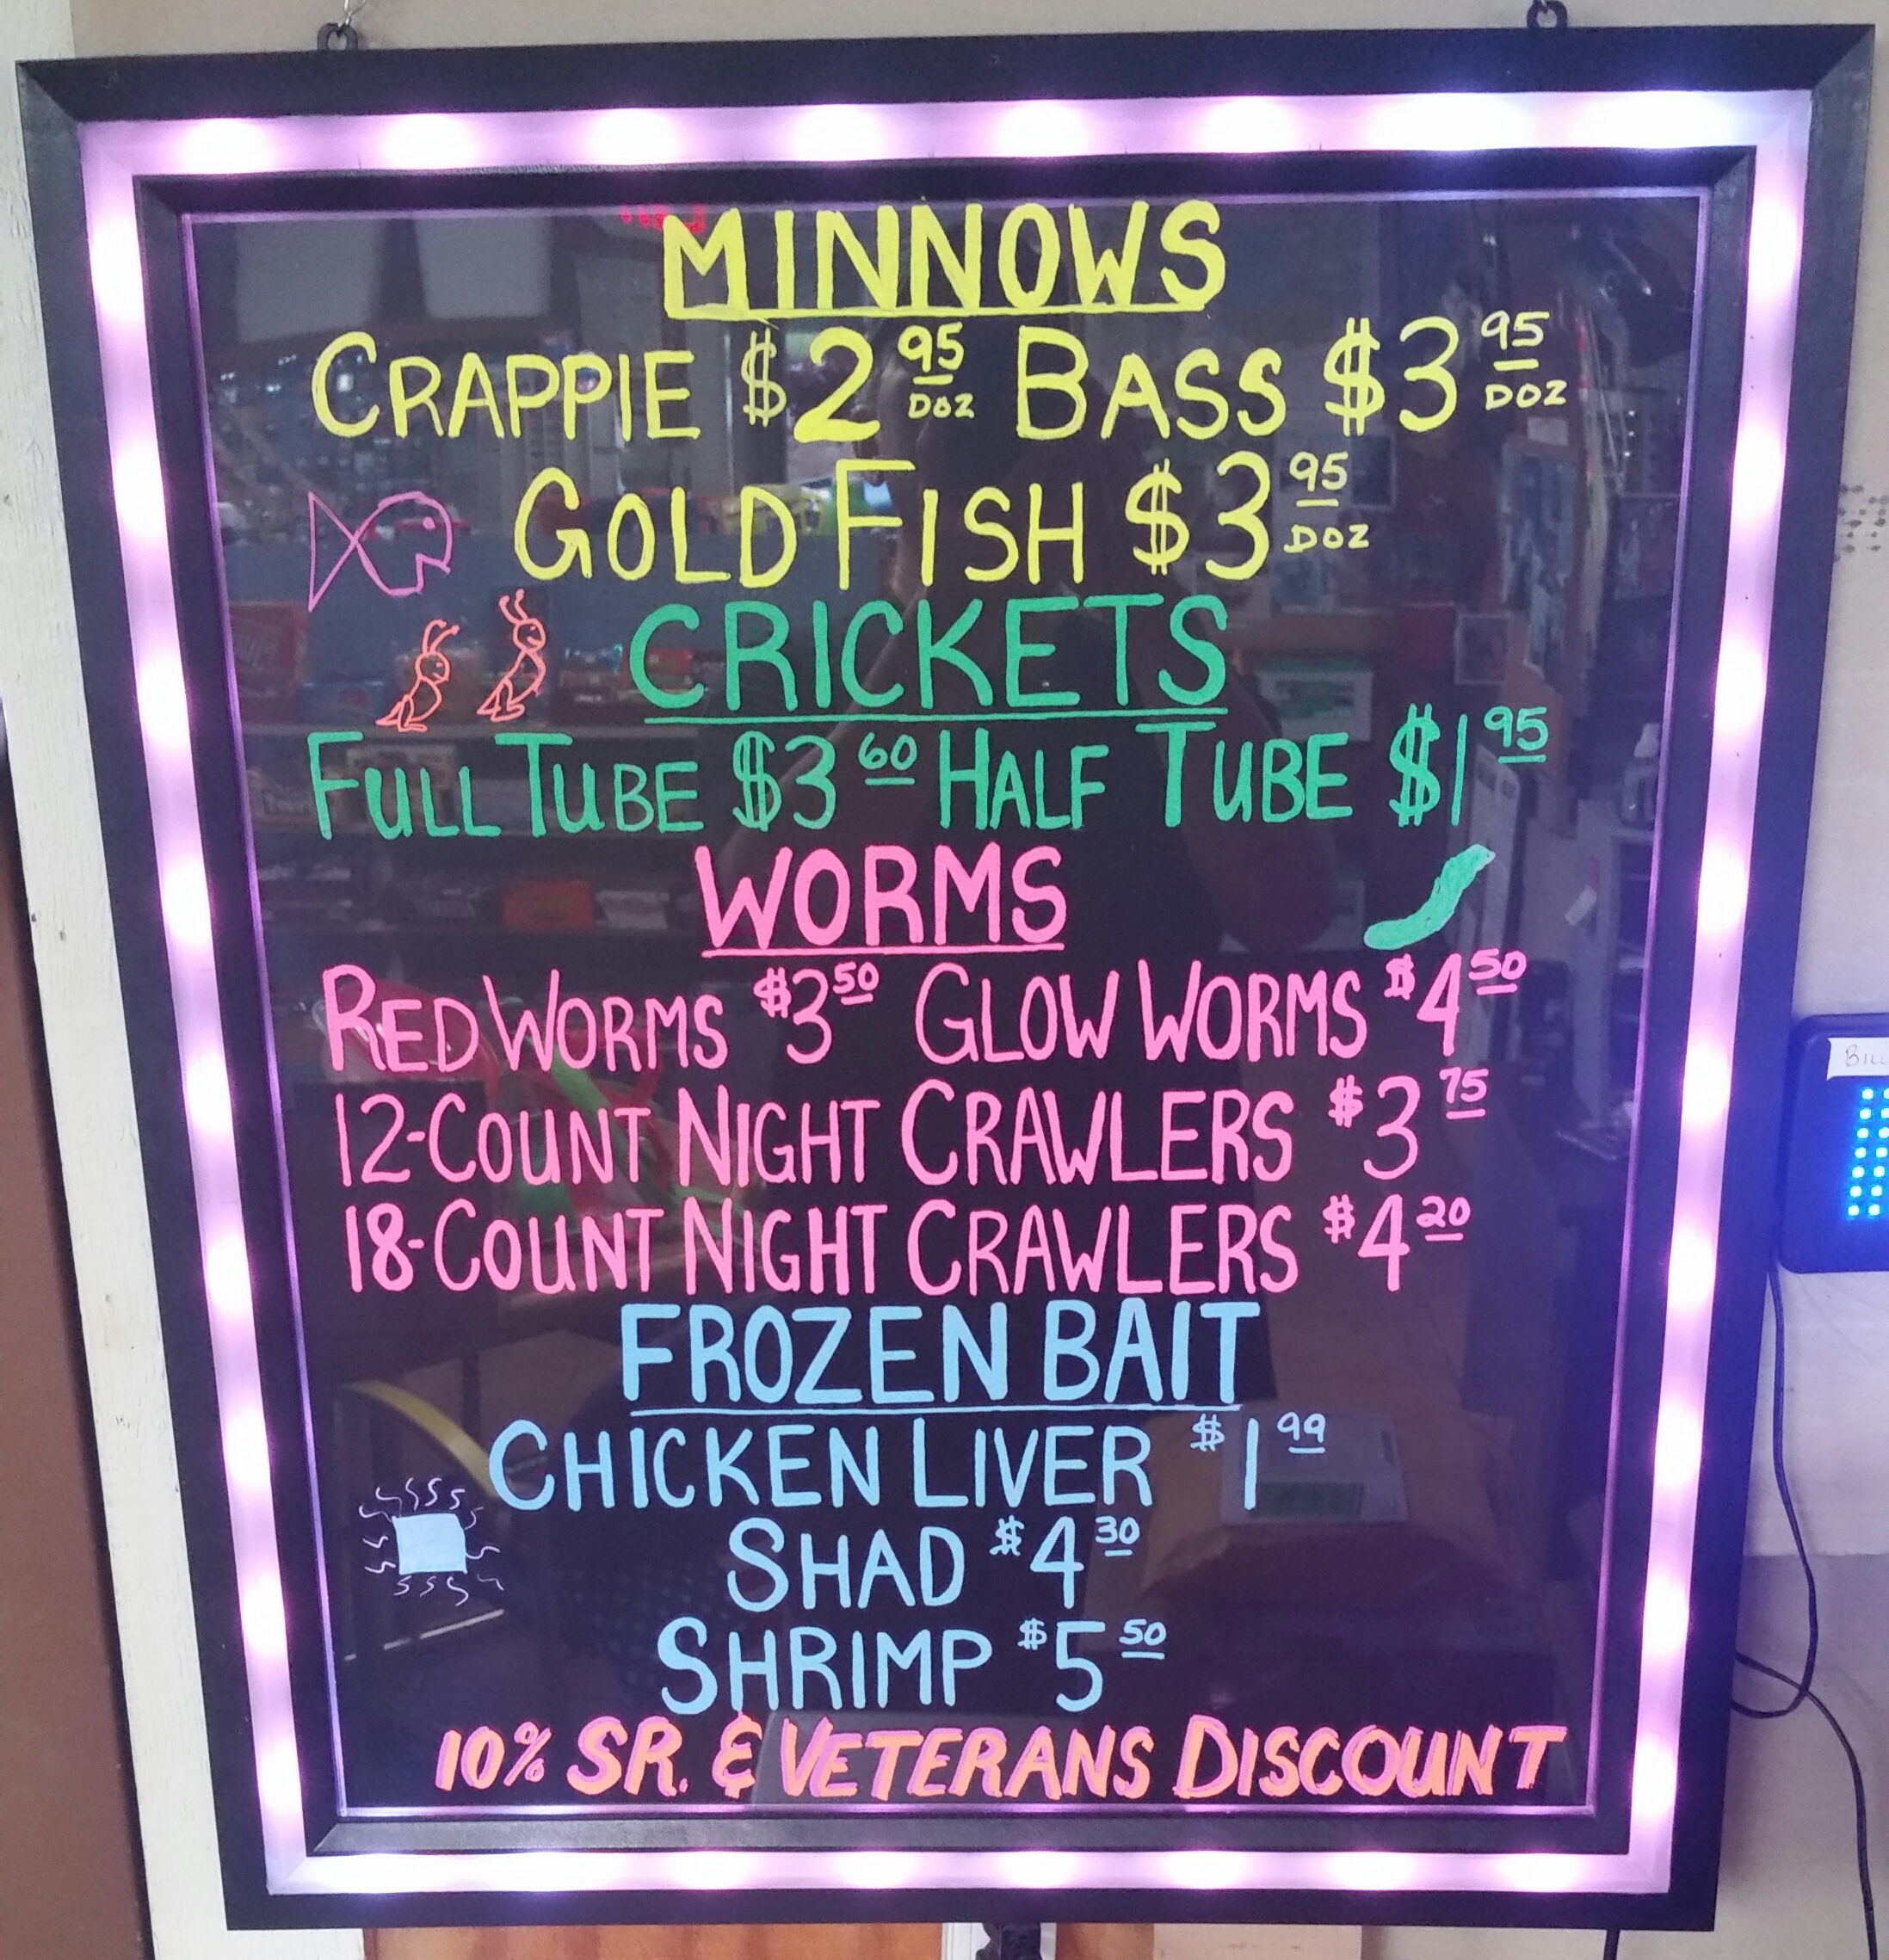 MINNOWS
CRAPPIE $2 95 DOZ BASS $3 95 DOZ
GOLD FISH $3 95 DOZ
CRICKETS
FULL TUBE $3 60 HALF TUBE $1 95
WORMS
RED WORMS $3 50 GLOW WORMS $4 50
12-COUNT NIGHT CRAWLERS $3 75
18-COUNT NIGHT CRAWLERS $4 20
FROZEN BAIT
CHICKEN LIVER $1 99
SHAD $4 30
SHRIMP $5 50
10% SR. & VETERANS DISCOUNT